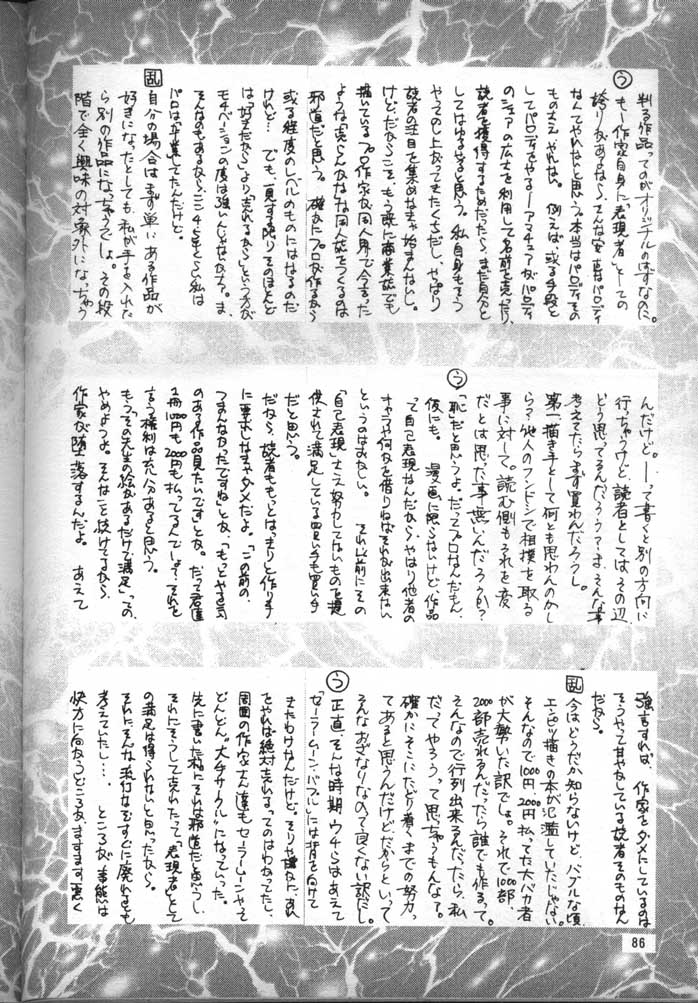 判る作品ってのがオリジナルのはずなのに。
う も一作家自身に「表現者」としての
誇りがあるなら、そんな安直なパロディ
なんてやれないと思う。本当はパロディその
ものさえやれない。例えば、或る手段と
してパロディをやる―アマチュアがパロディ
のシェアの広さを利用して名前を売ったり、
読者を獲得するためだったら、まだ自分と
してはゆるせると思う。私自身もそう
やってのし上がってきたくちだし、やっぱり
読者の注目を集めなきゃ始まんないし。
けど、だからこそ、もう既に商業誌でも
描いているプロ作家が同人界で今さらった
ような売らんかなな同人誌をつくるのは
邪道だと思う。確かにプロが作るから
或る程度のレベルのものにはなるのだ
けれど… でも、一見する限りそのほとんど
は「好きだから」より「売れるから」という方が
モチベーションの度は強いんじゃないか?。ま、
そんなのもあるから、ここ3~4年くらい私は
パロは“卒業”してたんだけど。
乱 自分の場合はまず単にある作品が
好きになったとしても、私が手を入れた
ら別の作品になっちゃうしょ。その段
階で全く興味の対象外になっちゃう
んだけど。―って書くと別の方向に
行っちゃうけど、読者としてはその辺
どう思ってるんだろう?ま、そんな事
考えてたらまず買わんだろうし。
第一描き手として何とも思わんのかし
ら?他人のフンドシで相撲を取る
事に対して。読む側もそれを変
だとは思った事無いんだろうか?
う 「恥」だと思うよ。だってプロなんだもん、
仮にも。漫画に限らないけど、作品
って自己表現なんだから、やはり他者の
キャラや何かを借りねばそれが出来ない
というのはおかしい。それ以前にその
「自己表現」さえ努力してないものを提
供されて満足している買い手も買い手
だと思う。
だから、読者ももっとはっきりと作り手
に要求しなきゃダメだよ。「この前の、
つまんなかったですね」とか、「もっとやる気
のある作品見たいです」とか。だって君達
1冊1000円も2000円も払ってるんでしょ?それを
言う権利は充分あると思う。
もう「その先生の絵があるだけで満足」っての、
やめようよ。そんな事を続けてるから、
作家が堕落するんだよ。あえて
強言すれば、作家をダメにしているのは
そうやって甘やかしている読者そのものなん
だから。
乱 今はどうだか知らないけど、バブルな頃
エンピツ描きの本が氾濫していたじゃない。
そんなので1000円、2000円払ってた大バカ者
が大勢いた訳でしょ。それで1000部、
2000部売れるんだったら誰でも作るって。
そんなので行列出来るんだったら、私
だってやろうって思っちゃうもんな?。
確かにそこにたどり着くまでの努力っ
てあると思うんだけど、だからといって
そんなおざなりなのって良くない訳だし。
う 正直、そんな時期ウチらはあえて
「セーラームーン・バブル」には背を向けて
きたわけなんだけど、そりゃ嫌なに、あれ
をやれば絶対売れるってのはわかってたし、
周囲の作家さん達もセーラームーンやって
どんどん“大手サークル”になっていった。
先に書いた様にそれは邪道だと思うし、
それにそうして売れたって「表現者」として
の満足は得られないと思ったから。
それにそんな流行なぞすぐに廃れるとも
考えていたし…。ところが、事態は
快方に向かうどころか、ますます悪く
86